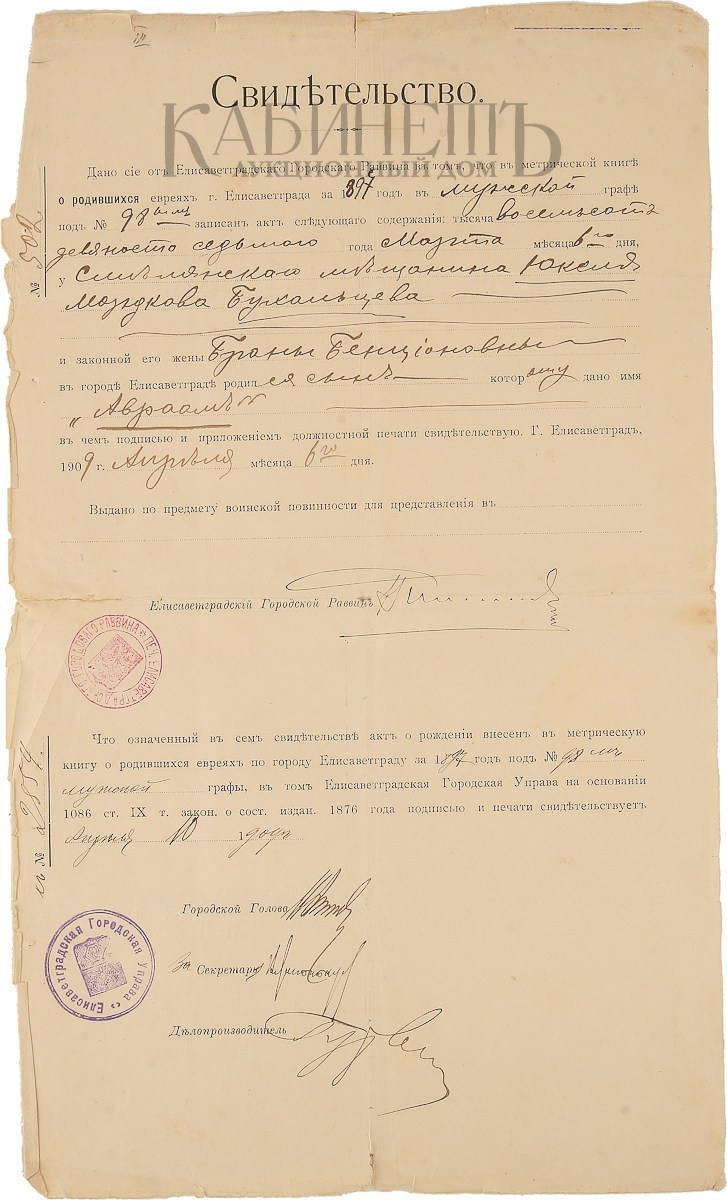 III
Свидѣтельство.
КАБИНЕТЪ
АУКЦИОННЫЙ ДОМ
Дано сіе отъ Елисаветградскаго Городскаго Раввина въ томъ, что въ метрической книгѣ
о родившихся евреяхъ г. Елисаветграда за 1897 годъ въ мужской графѣ
подъ № 98 записанъ актъ слѣдующаго содержанія: тысяча восемьсотъ
девяносто седьмого года Марта мѣсяца 6го дня,
у Смѣлянскаго мѣщанина Юкеля
Бухальцева
и законной его жены Браны Бенціоновны
въ городѣ Елисаветградѣ родился сынъ которому дано имя
„Авраамъ“
въ чемъ подписью и приложеніемъ должностной печати свидѣтельствую. Г. Елисаветградъ,
1909 г. Апрѣля мѣсяца 6го дня.
Выдано по предмету воинской повинности для представленія въ
Елисаветградскій Городской Раввинъ
ПЕЧ. ЕЛИСАВЕТГРАДСКАГО ГОРОДОВАГО РАВВИНА
№ 502
Что означенный въ семъ свидѣтельствѣ актъ о рожденіи внесенъ въ метрическую
книгу о родившихся евреяхъ по городу Елисаветграду за 1897 годъ подъ № 98мъ
мужской графы, въ томъ Елисаветградская Городская Управа на основаніи
1086 ст. IX т. закон. о сост. издан. 1876 года подписью и печати свидѣтельствуетъ
Апрѣля 10 1909 г.
№ 2554.
Городской Голова
За Секретаря
Дѣлопроизводитель
Елисаветградская Городская Управа